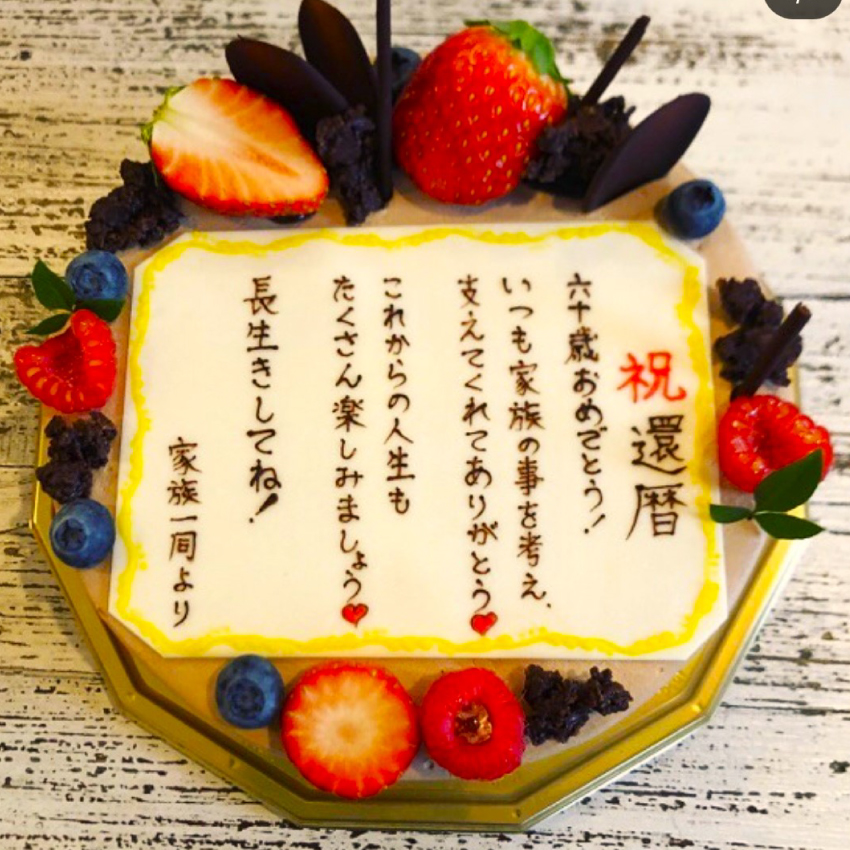 祝還暦
六十歳おめでとう!
いつも家族の事を考え、
支えてくれてありがとう
これからの人生も
たくさん楽しみましょう
長生きしてね!
家族一同より